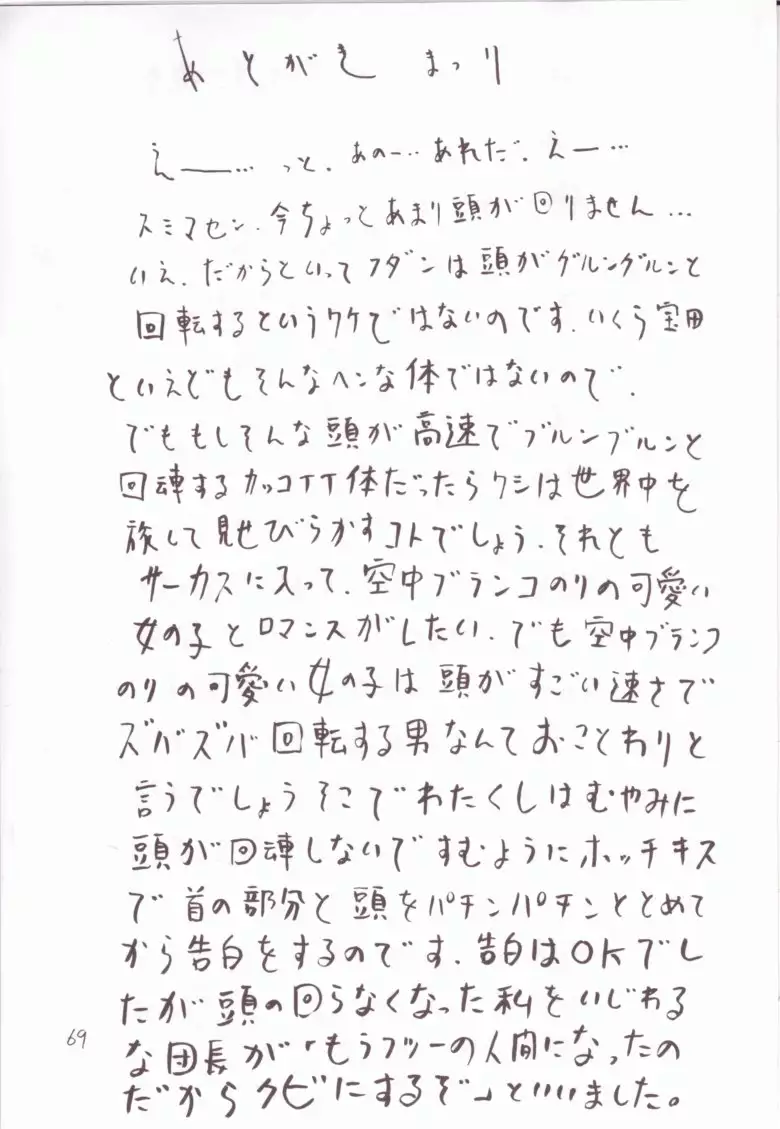 あとがき まつり
えー――…っと、あの―…あれだ、えー…
スミマセン、今ちょっとあまり頭が回りません…
いえ、だからといってフダンは頭がグルングルンと
回転するというワケではないのです、いくら宝田
といえどもそんなヘンな体ではないので、
でももしそんな頭が高速でブルンブルンと
回転するカッコイイ体だったらワシは世界中を
旅して見せびらかすコトでしょう、それとも
サーカスに入って、空中ブランコのりの可愛い
女の子とロマンスがしたい、でも空中ブランコ
のりの可愛い女の子は頭がすごい速さで
ズバズバ回転する男なんておことわりと
言うでしょうそこでわたくしはむやみに
頭が回転しないですむようにホッチキス
で首の部分と頭をパチンパチンととめて
から告白をするのです、告白はOKでし
たが頭の回らなくなった私をいじわる
な団長が「もうフツーの人間になったの
だからクビにするぞ」といいました。
69